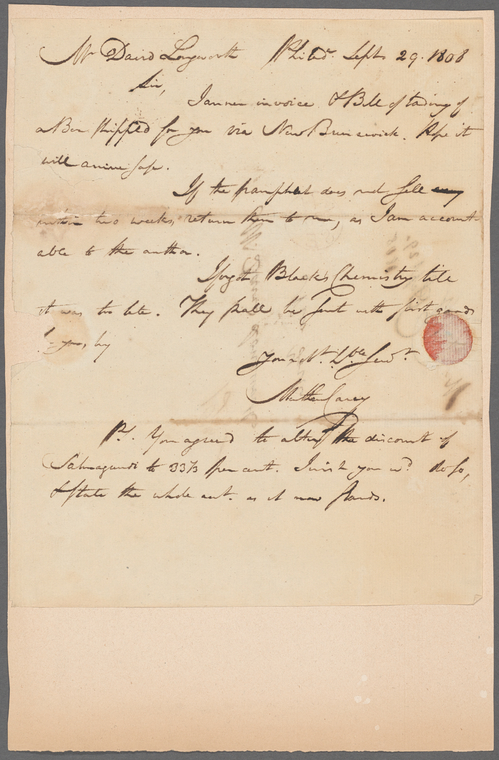 Mr David Longworth Philada. Sept 29. 1808
Sir,
I annex invoice & Bill of lading of
a Box shipped for you via New Brunswick. Hope it
will arrive safe.
If the pamphlet does not sell
within two weeks, return them to me, as I am account-
able to the author.
I forgot Black's Chemistry till
it was too late. They shall be sent with first goods
by
Your obt. hble Servt.
Mathew Carey
Ps. You agreed to alter the discount of
Salmagundi to 33⅓ per cent. I wish you wd. do so,
& state the whole act. as it now stands.